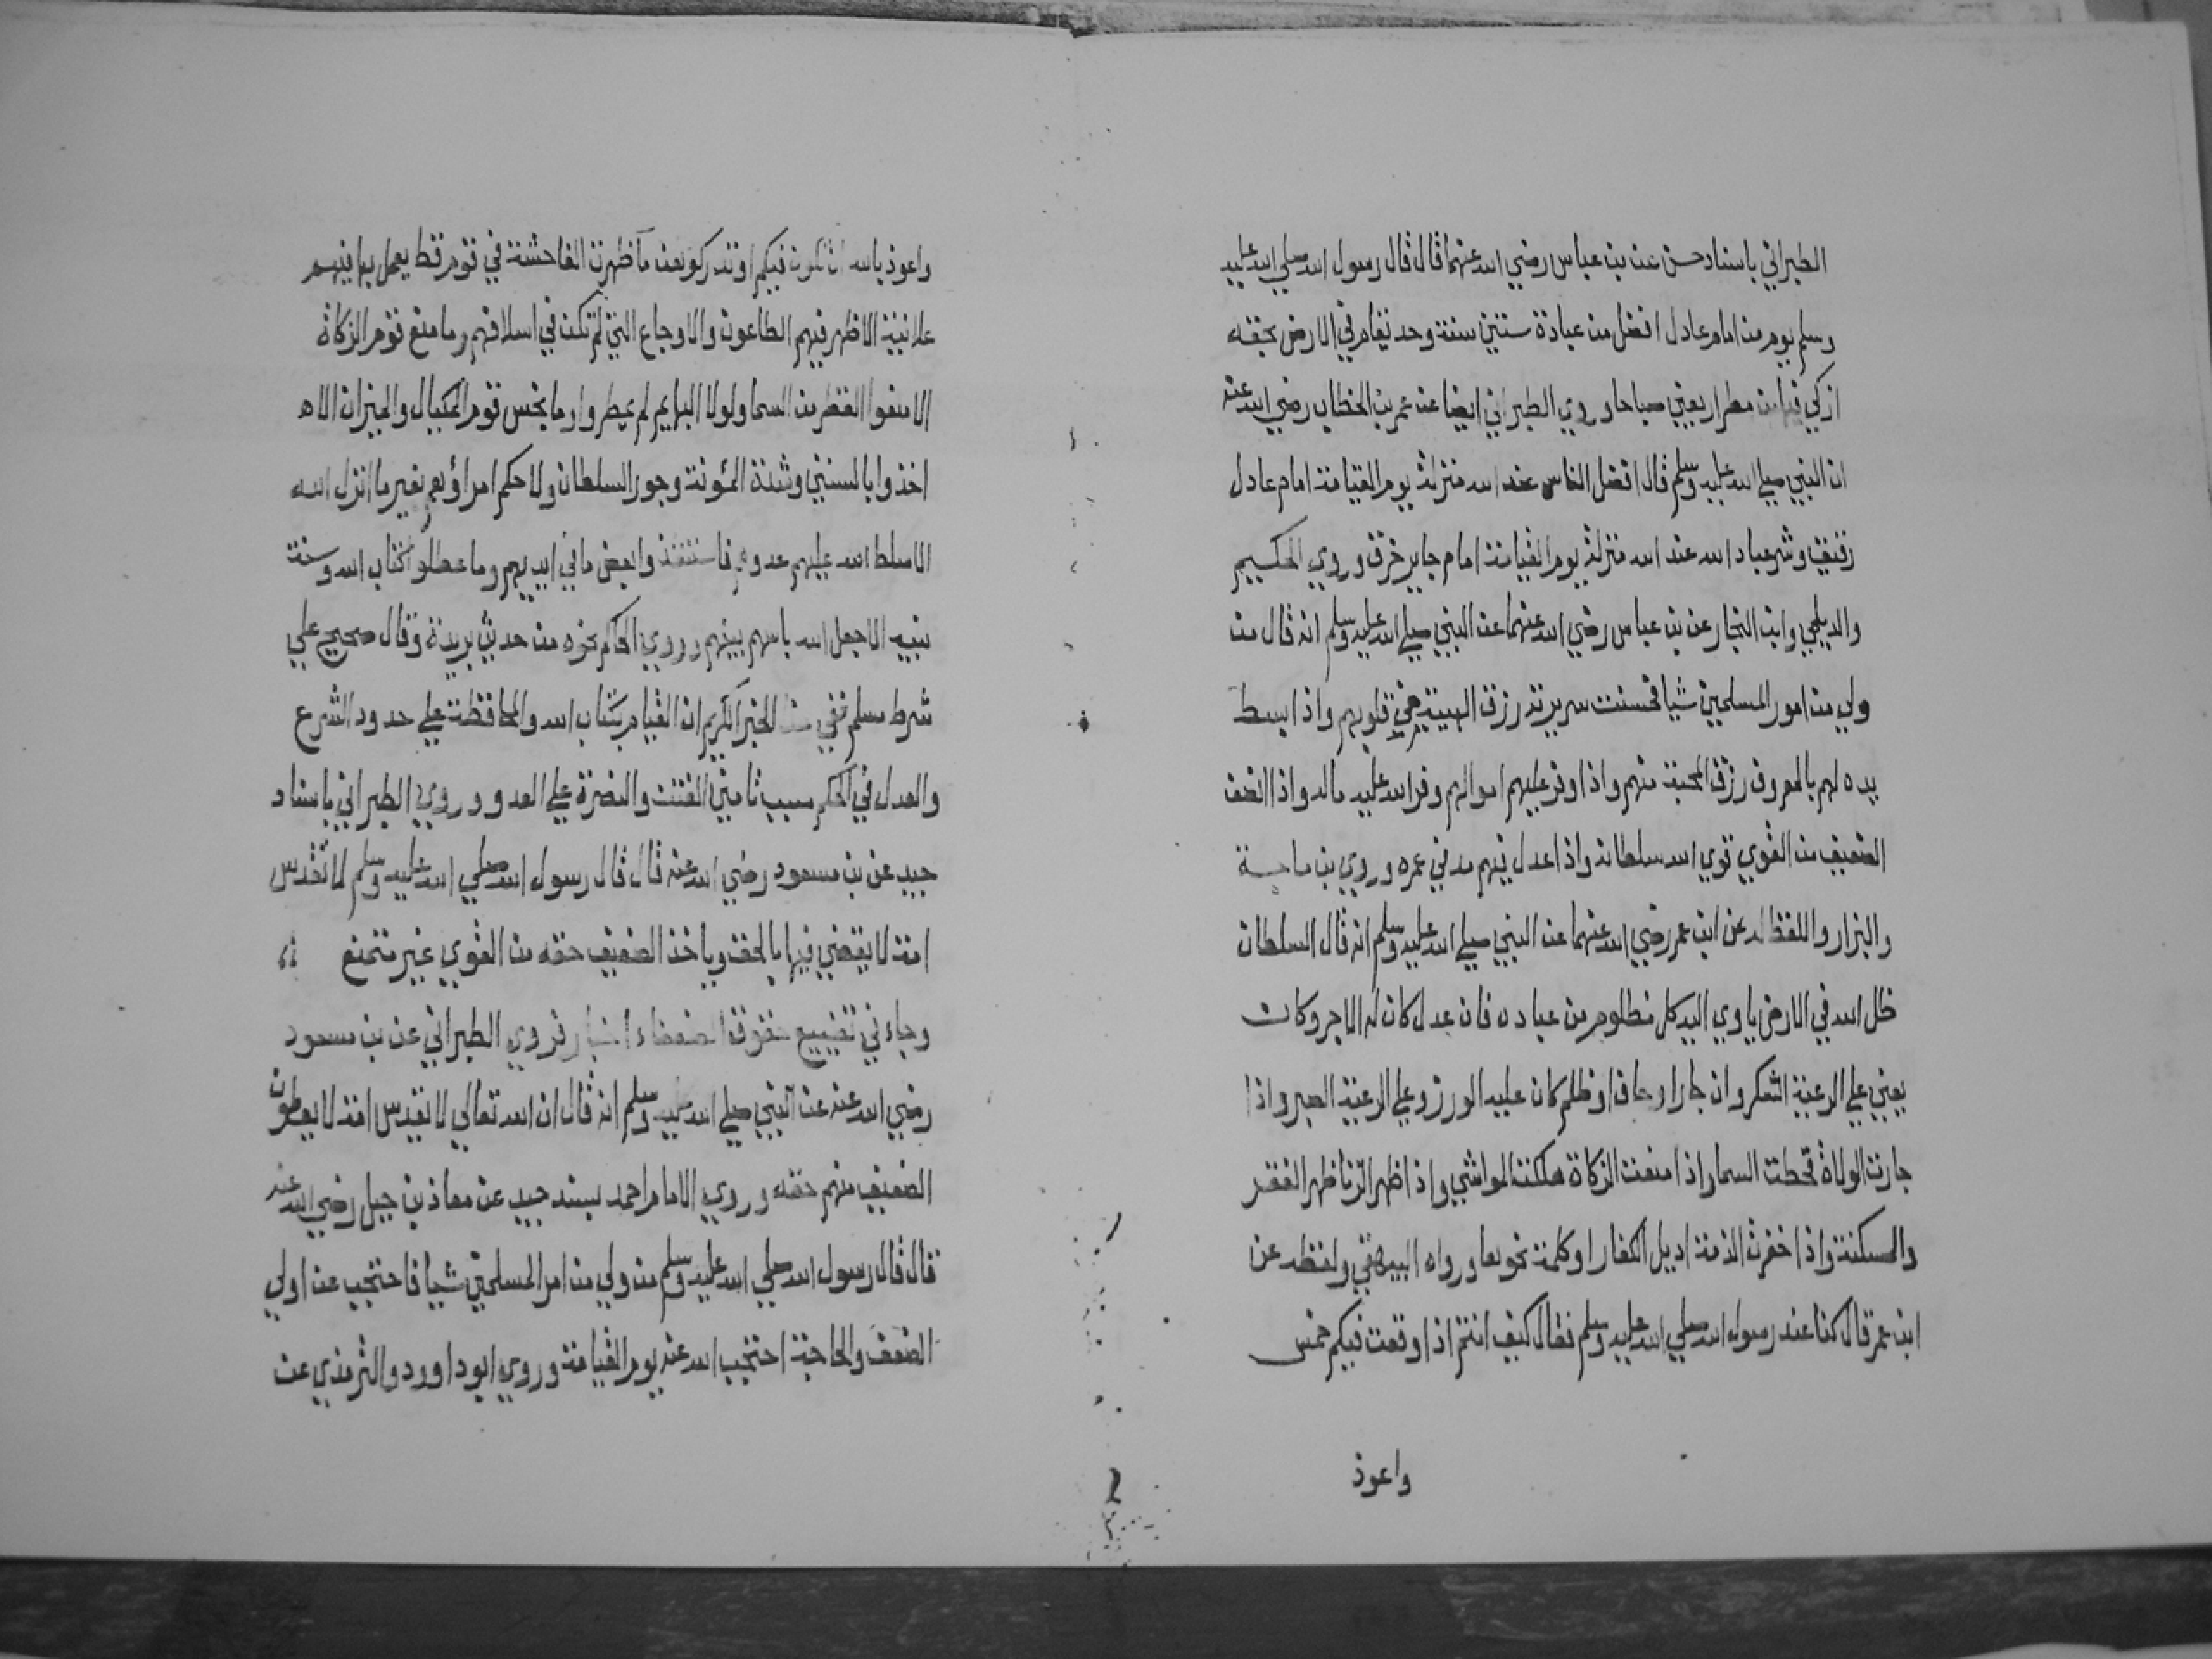 الطبراني باسناد حسن عن بن عباس رضي الله عنهما قال قال رسول الله صلي الله عليه
وسلم يوم من امام عادل افضل من عبادة ستين سنة وحد يقام في الارض بحقه
ازكي فيها من مطر اربعين صباحا وروي الطبراني ايضا عن عمر بن الخطاب رضي الله عنه
ان النبي صلي الله عليه وسلم قال افضل الناس عند الله منزلة يوم القيامة امام عادل
رفيق وشر عباد الله عند الله منزلة يوم القيامة امام جاير خرق وروي الحكيم
والديلمي وابن النجار عن بن عباس رضي الله عنهما عن النبي صلي الله عليه وسلم انه قال من
ولي من امور المسلمين شيا فحسنت سريرته رزق الهيبة في قلوبهم واذا بسط
يده لهم بالمعروف رزق المحبة منهم واذا وفر عليهم اموالهم وفر الله عليه ماله واذا انصف
الضعيف من القوي قوي الله سلطانه واذا عدل فيهم مد في عمره وروي بن ماجة
والبزار واللفظ له عن ابن عمر رضي الله عنهما عن النبي صلي الله عليه وسلم انه قال السلطان
ظل الله في الارض ياوي اليه كل مظلوم من عباده فان عدل كان له الاجر وكان
يعني علي الرعية الشكر وان جارا وحاف او ظلم كان عليه الوزر وعلي الرعية الصبر واذا
جارت الولاة قحطت السما واذا منعت الزكاة هلكت المواشي واذا ظهر الزنا ظهر الفقر
والمسكنة واذا خفرت الذمة اديل الكفار او كلمة نحوها ورواه البيهقي ولفظه عن
ابن عمر قال كنا عند رسول الله صلي الله عليه وسلم فقال كيف انتم اذا وقعت فيكم خمس
واعوذ
واعوذ بالله ان تكون فيكم او تدركوهن ما ظهرت الفاحشة في قوم قط يعمل بها فيهم
علانية الا ظهر فيهم الطاعون والاوجاع التي لم تكن في اسلافهم وما منع قوم الزكاة
الا منعوا القطر من السما ولولا البهايم لم يمطروا وما بخس قوم المكيال والميزان الا
اخذوا بالسنين وشدة المؤونة وجور السلطان ولا حكم امراؤهم بغير ما انزل الله
الا سلط الله عليهم عدوهم فاستنقذوا بعض ما في ايديهم وما عطلوا كتاب الله وسنة
نبيه الا جعل الله باسهم بينهم وروي الحاكم نحوه من حديث بريدة وقال صحيح علي
شرط مسلم ففي هذا الخبر الكريم ان القيام بكتاب الله والمحافظة علي حدود الشرع
والعدل في الحكم سبب تامين الفتن والنصرة علي العدو وروي الطبراني باسناد
جيد عن بن مسعود رضي الله عنه قال قال رسول الله صلي الله عليه وسلم لا تقدس
امة لا يقضي فيها بالحق وياخذ الضعيف حقه من القوي غير متمنع
وجاء في تضييع حقوق الضعفاء اخبار فروي الطبراني عن بن مسعود
رضي الله عنه عن النبي صلي الله عليه وسلم انه قال ان الله تعالي لا يقدس امة لا يعطون
الضعيف منهم حقه وروي الامام احمد بسند جيد عن معاذ بن جبل رضي الله عنه
قال قال رسول الله صلي الله عليه وسلم من ولي من امر المسلمين شيا فاحتجب عن اولي
الضعف والحاجة احتجب الله عنه يوم القيامة وروي ابو داورد والترمذي عن